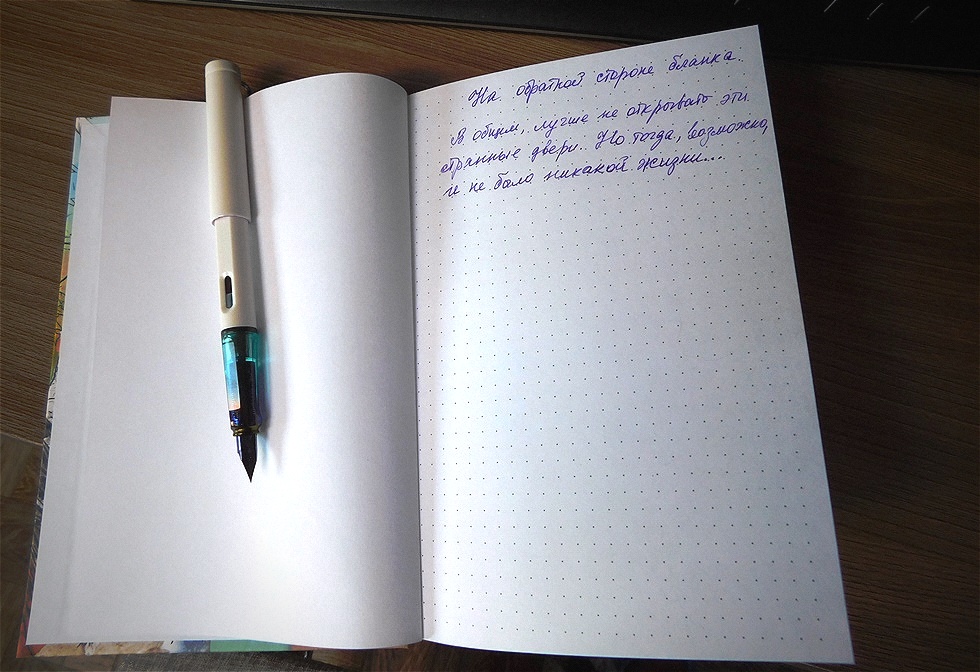 На обратной стороне бланка.
В общем, лучше не открывать эти
странные двери.. Но тогда, возможно,
и не было никакой жизни...